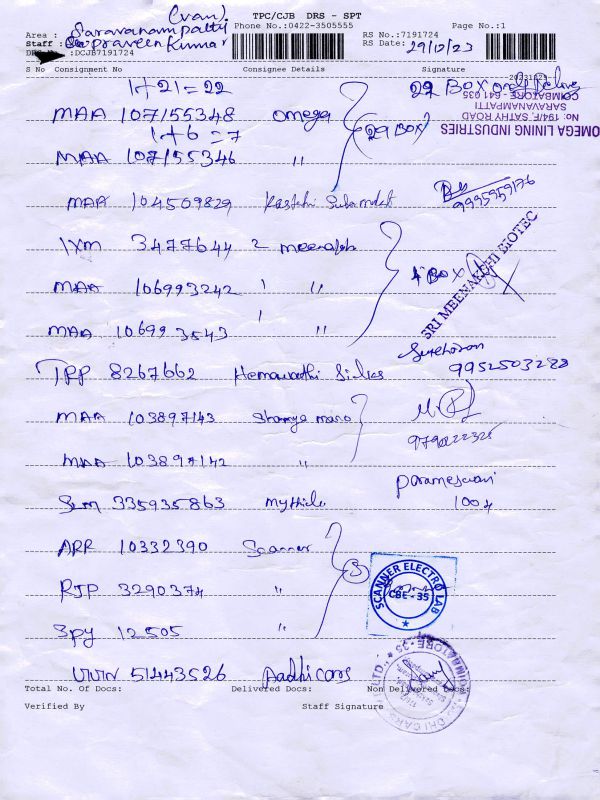 (van) TPC/CJB DRS - SPT
Area : Saravanampatty Phone No.:0422-3505555 Page No.:1
Staff : Praveenkumar RS No.:7191724
DRS No :DCJB7191724 RS Date: 29/12/23
S No Consignment No Consignee Details Signature
1+21=22 22 BOX only
MAA 107155348 Omega (29 BOX)
1+6=7
MAA 107155346 "
OMEGA LINING INDUSTRIES
No: 194/F, SATHY ROAD
SARAVANAMPATTI
COIMBATORE - 641 035
MAA 104509829 9995959176
IXM 3477644 2 meenakshi
MAA 106993242 " 4 BOX
SRI MEENAKSHI BIOTEC
MAA 106993543 "
TPP 8267662 Hemawathi Silks 9952503288
MAA 103897143 9790222325
MAA 103897142 "
SLM 335935863 mythili Parameswari
ARR 10332390 Scanner
RJP 3290374 " 3
SCANNER ELECTRO LAB
CBE - 35
SPY 12505 "
VVN 51443526 Aadhi cars
Total No. Of Docs: Delivered Docs: Non Delivered Docs:
Verified By Staff Signature